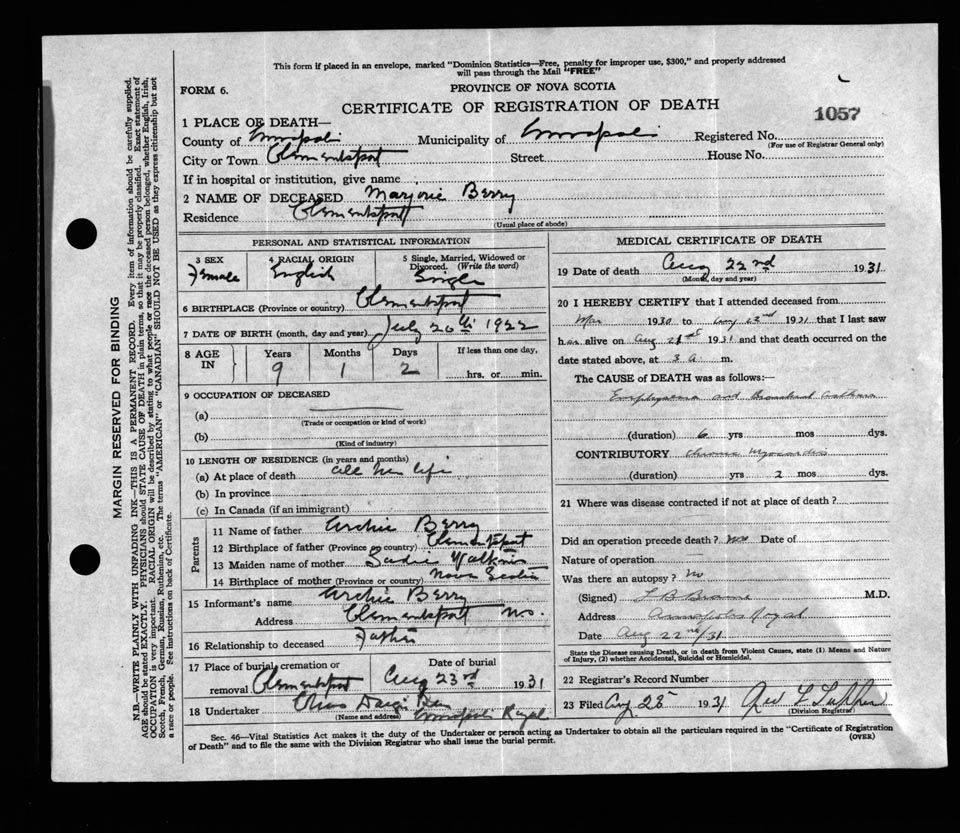 This form if placed in an envelope, marked "Dominion Statistics—Free, penalty for improper use, $300," and properly addressed
will pass through the Mail "FREE"
FORM 6.
PROVINCE OF NOVA SCOTIA
CERTIFICATE OF REGISTRATION OF DEATH
1057
1 PLACE OF DEATH—
County of Municipality of Registered No.
(For use of Registrar General only)
City or Town Clementsport Street House No.
If in hospital or institution, give name
2 NAME OF DECEASED Marjorie Berry
Residence Clementsport
(Usual place of abode)
PERSONAL AND STATISTICAL INFORMATION
3 SEX 4 RACIAL ORIGIN 5 Single, Married, Widowed or
Divorced. (Write the word)
Female English Single
6 BIRTHPLACE (Province or country) Clementsport
7 DATE OF BIRTH (month, day and year) July 20th 1922
8 AGE IN Years Months Days If less than one day,
9 1 2 hrs. or min.
9 OCCUPATION OF DECEASED
(a)
(Trade or occupation or kind of work)
(b)
(Kind of industry)
10 LENGTH OF RESIDENCE (in years and months)
(a) At place of death all her life
(b) In province
(c) In Canada (if an immigrant)
Parents
11 Name of father Archie Berry
12 Birthplace of father (Province or country) Clementsport
13 Maiden name of mother Sadie
14 Birthplace of mother (Province or country) Nova Scotia
15 Informant's name Archie Berry
Address Clementsport N.S.
16 Relationship to deceased Father
17 Place of burial, cremation or Date of burial
removal Clementsport Aug 23rd 1931
18 Undertaker
(Name and address) Annapolis Royal
MEDICAL CERTIFICATE OF DEATH
19 Date of death Aug 22nd 1931
(Month, day and year)
20 I HEREBY CERTIFY that I attended deceased from
Mar 1930 to Aug 22nd 1931 that I last saw
her alive on Aug 21st 1931 and that death occurred on the
date stated above, at 3 a m.
The CAUSE of DEATH was as follows:—
Emphysema and Bronchial Asthma
(duration) 6 yrs mos dys.
CONTRIBUTORY Chronic Myocarditis
(duration) yrs 2 mos dys.
21 Where was disease contracted if not at place of death?
Did an operation precede death? No Date of
Nature of operation
Was there an autopsy? No
(Signed) M.D.
Address Annapolis Royal
Date Aug 22nd/31
State the Disease causing Death, or in death from Violent Causes, state (1) Means and Nature
of Injury, (2) whether Accidental, Suicidal or Homicidal.
22 Registrar's Record Number
23 Filed Aug 25 1931
(Division Registrar)
Sec. 46—Vital Statistics Act makes it the duty of the Undertaker or person acting as Undertaker to obtain all the particulars required in the "Certificate of Registration
of Death" and to file the same with the Division Registrar who shall issue the burial permit.
(OVER)
MARGIN RESERVED FOR BINDING
N.B.—WRITE PLAINLY WITH UNFADING INK—THIS IS A PERMANENT RECORD. Every item of information should be carefully supplied.
AGE should be stated EXACTLY. PHYSICIANS should STATE CAUSE OF DEATH in plain terms, so that it may be properly classified. Exact statement of
OCCUPATION is very important. RACIAL ORIGIN will be described by stating to what people or race the deceased person belonged, whether English, Irish,
Scotch, French, German, Russian, Ruthenian, etc. The terms "AMERICAN" or "CANADIAN" SHOULD NOT BE USED as they express citizenship but not
a race or people. See instructions on back of Certificate.